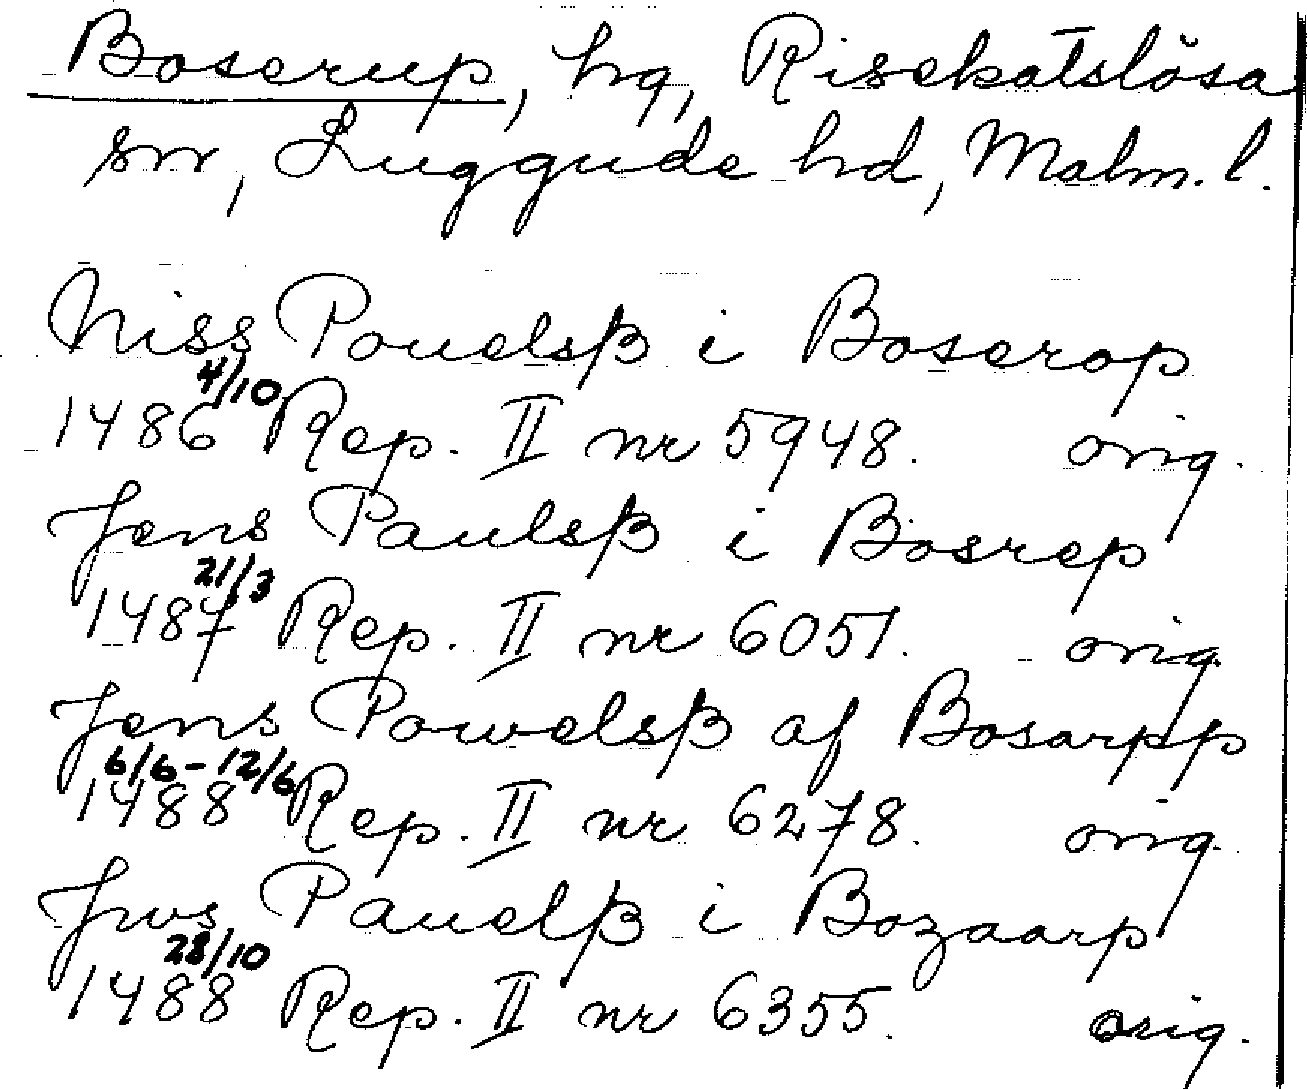 Boserup, hg, Risekatslösa
sn, Luggude hd, Malm. l.
Niss Pouelsß i Boserop
1486 4/10 Rep. II nr 5948. orig.
Jens Paulsß i Bosrep
1487 21/3 Rep. II nr 6051. orig.
Jens Powelsß af Bosarpp
1488 6/6-12/6 Rep. II nr 6278. orig.
Jws Pauelß i Bozaarp
1488 28/10 Rep. II nr 6355. orig.